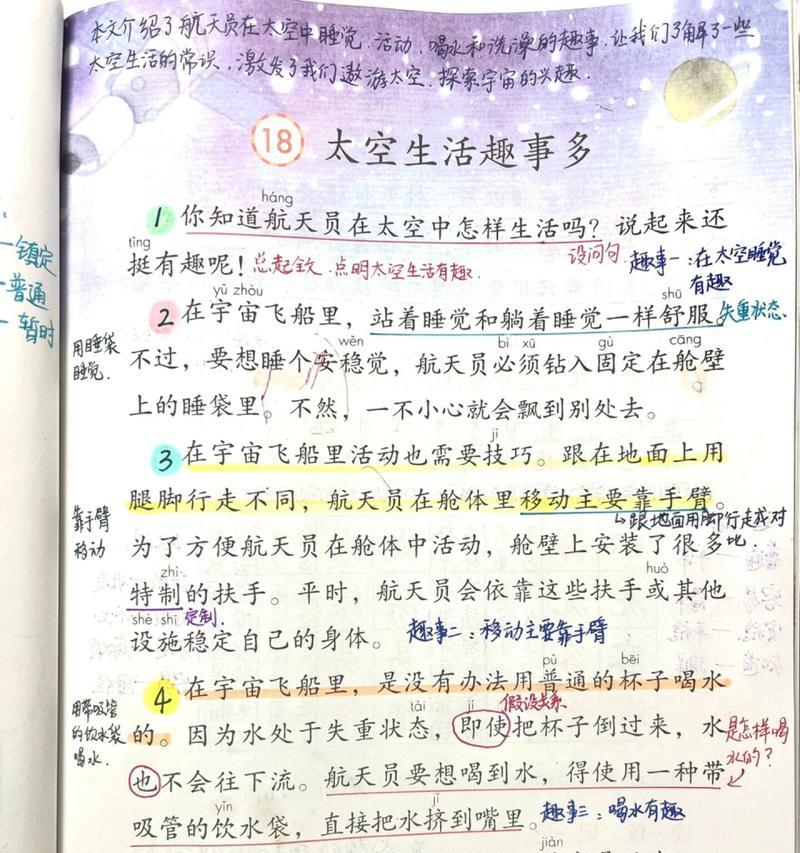 本文介绍了航天员在太空中睡觉、活动、喝水和洗澡的趣事,让我们了解了一些
太空生活的常识,激发了我们遨游太空、探索宇宙的兴趣.
18 太空生活趣事多
háng
1 你知道航天员在太空中怎样生活吗?说起来还
tǐng
挺有趣呢!
总起全文,点明太空生活有趣.
设问句.
趣事一:在太空睡觉
有趣
镇定
普通
暂时
yǔ zhòu
shū
2 在宇宙飞船里,站着睡觉和躺着睡觉一样舒服。
失重状态.
用睡袋
睡觉.
wěn bì xū gù cāng
不过,要想睡个安稳觉,航天员必须钻入固定在舱壁
上的睡袋里。不然,一不小心就会飘到别处去。
jì
3 在宇宙飞船里活动也需要技巧。跟在地面上用
腿脚行走不同,航天员在舱体里移动主要靠手臂。
靠手臂
移动
跟地面用脚行走成对
比.
为了方便航天员在舱体中活动,舱壁上安装了很多
zhì huò
特制的扶手。平时,航天员会依靠这些扶手或其他
定制.
shè shī
设施稳定自己的身体。
趣事二:移动主要靠手臂
pǔ bēi
4 在宇宙飞船里,是没有办法用普通的杯子喝水
用带吸管
的饮水袋
喝水.
假设关系
tài jí
的。因为水处于失重状态,即使把杯子倒过来,水
是怎样喝
水的?
也不会往下流。航天员要想喝到水,得使用一种带
yǐn jǐ
吸管的饮水袋,直接把水挤到嘴里。
趣事三:喝水有趣
jiàn